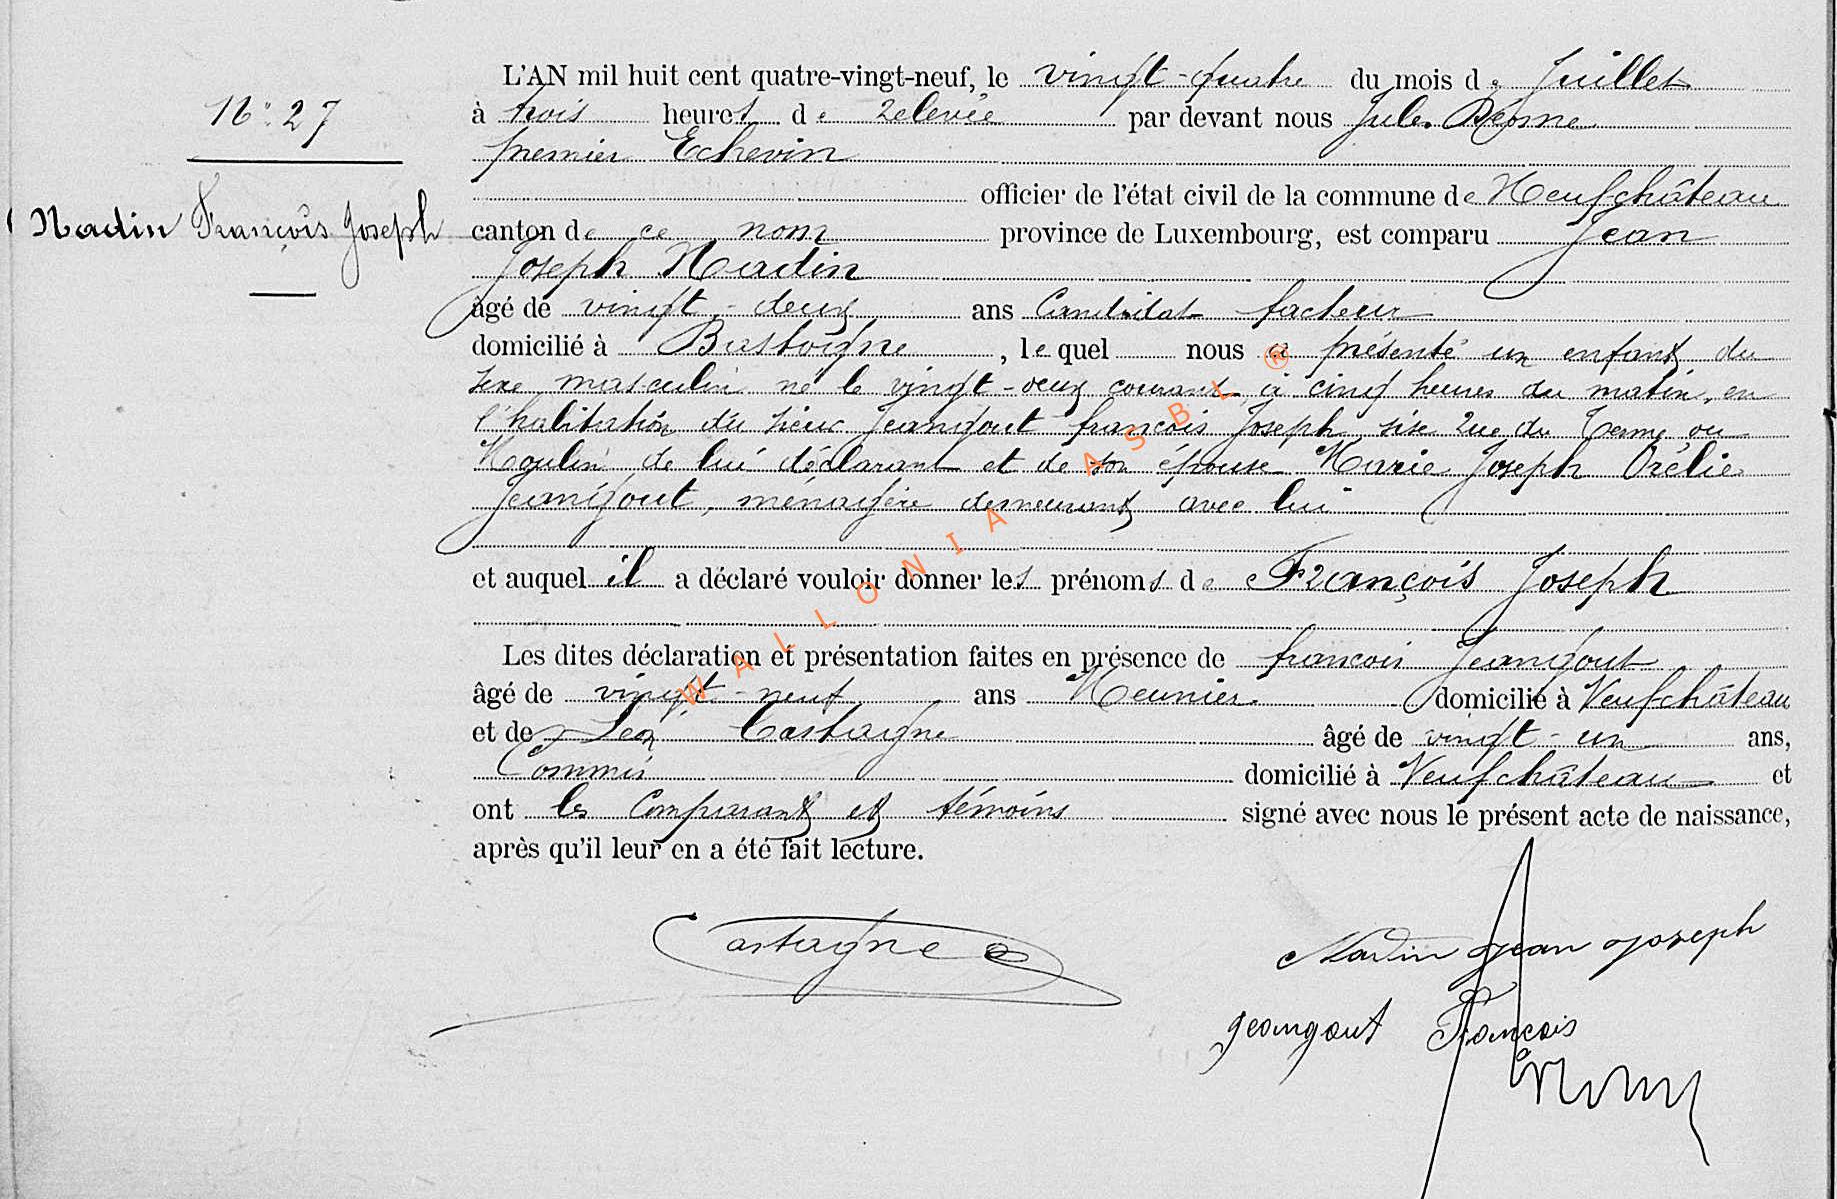 N° 27
Nadin François Joseph
L'AN mil huit cent quatre-vingt-neuf, le vingt-quatre du mois de Juillet
à trois heures de relevée par devant nous Jules
premier Echevin
officier de l'état civil de la commune de Neufchâteau
canton de ce nom province de Luxembourg, est comparu Jean
Joseph Nadin
âgé de vingt-deux ans Candidat facteur
domicilié à Bastogne, lequel nous a présenté un enfant du
sexe masculin né le vingt-deux courant, à cinq heures du matin, en
l'habitation du sieur Jeangout françois Joseph, sise rue du Terme, ou
Moulin de lui déclarant et de son épouse Marie Joseph Orélie
Jeangout, ménagère demeurant avec lui
et auquel il a déclaré vouloir donner les prénoms de François Joseph
Les dites déclaration et présentation faites en présence de françois Jeangout
âgé de vingt-neuf ans Meunier domicilié à Neufchâteau
et de Léon Castagne âgé de vingt-un ans,
Commis domicilié à Neufchâteau et
ont les Comparant et témoins signé avec nous le présent acte de naissance,
après qu'il leur en a été fait lecture.
Castagne
Nadin Jean Joseph
Jeangout François
WALLONIA ASBL ®